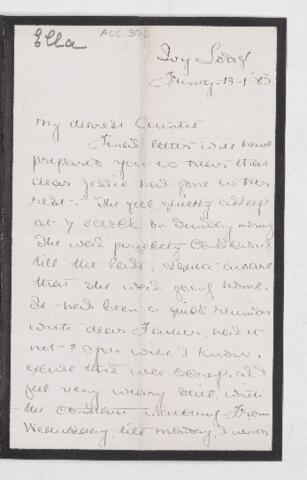 Ella
ACC. 376
Ivy Lodge
My dearest Auntie
letter will have
prepared you to hear that
dear Jessie had gone to her
rest. She fell quietly asleep
at 7 o'clock on Sunday morning
She was perfectly conscious
till the last. &quite aware
that she was going home.
It has been a quick reunion
with dear Father, has it
not? You will I know,
excuse this wee scrap, as I
feel very weary still with
the constant watching. From
Wednesday till Monday, I never